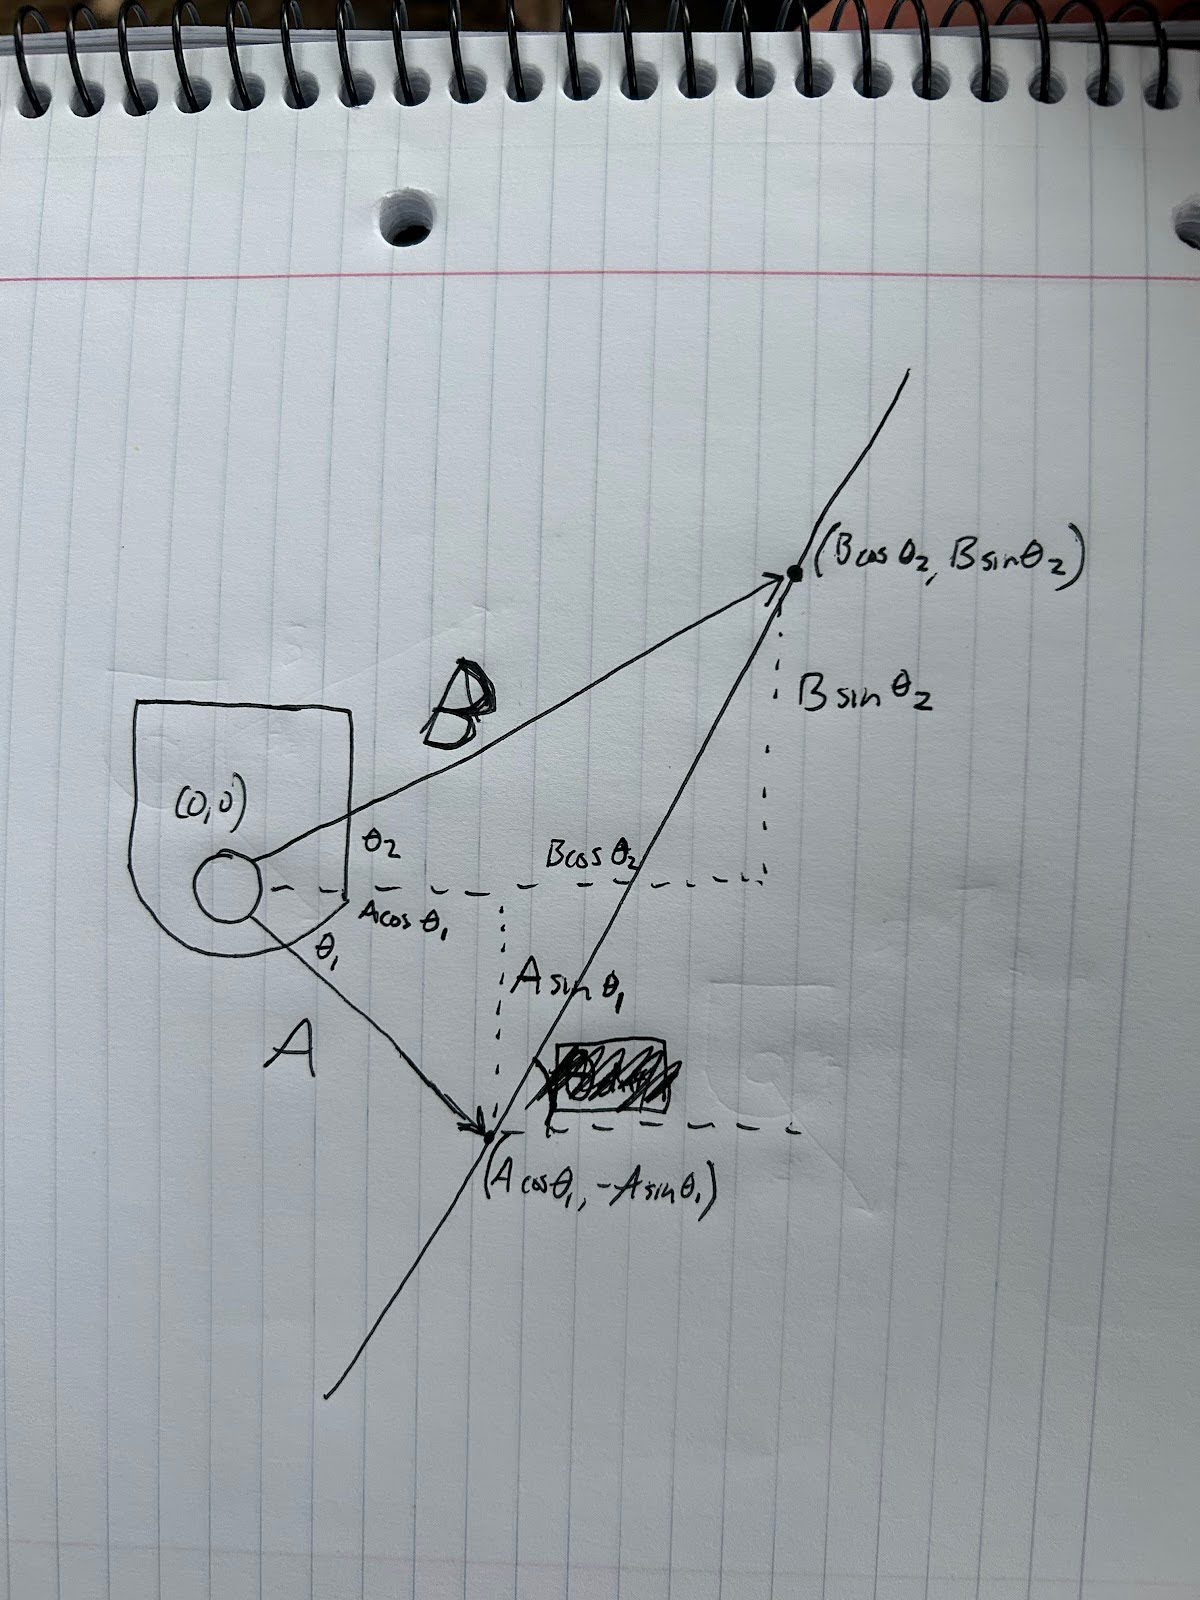 (Bcos θ₂, Bsinθ₂)
B
Bsinθ₂
(0,0)
θ₂
Bcos θ₂
Acos θ₁
θ₁
A sin θ₁
A
(A cosθ₁, -Asinθ₁)